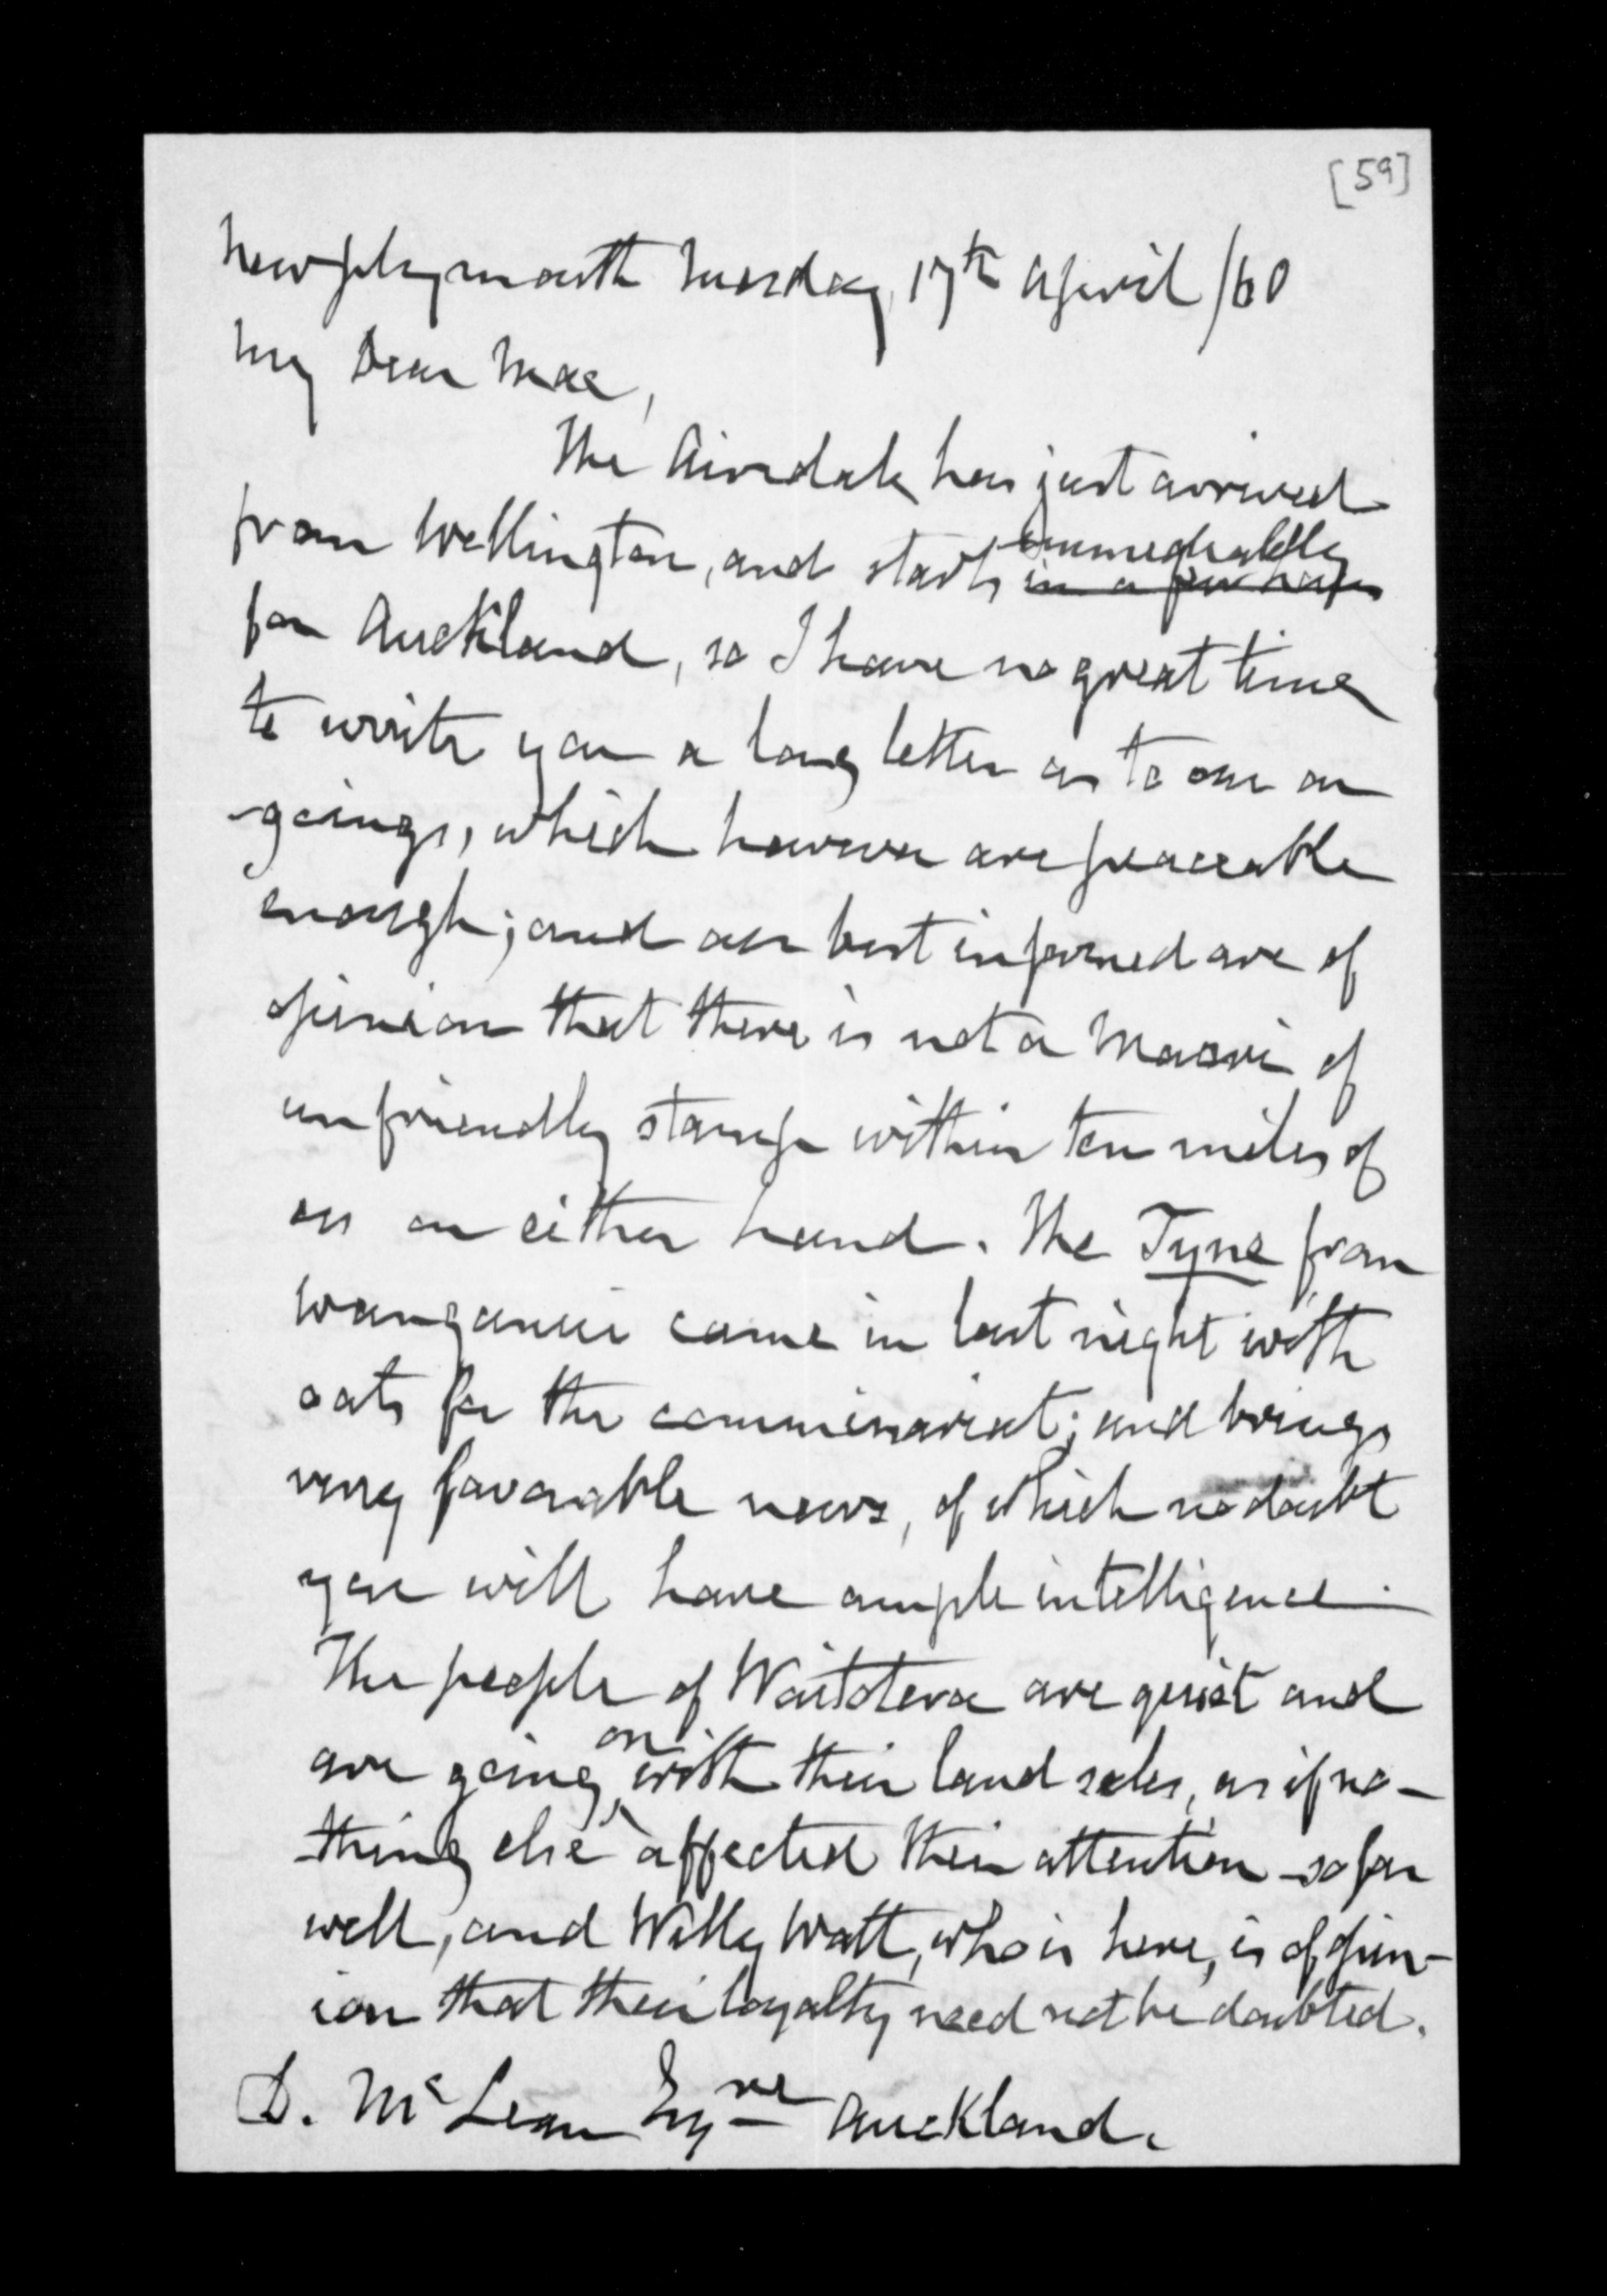 [59]
Newplymouth Tuesday, 17th April /60
My Dear Mac,
The Airedale has just arrived
from Wellington, and starts immediately
in a few hours
for Auckland, so I have no great time
to write you a long letter as to our on
-goings, which however are peaceable
enough; and our best informed are of
opinion that there is not a Maori of
unfriendly stamp within ten miles of
us on either hand. The Tyne from
Wanganui came in last night with
oats for the commissariat; and brings
very favorable news, of which no doubt
you will have ample intelligence.
The people of Waitotera are quiet and
are going on with their land sales, as if no-
thing else affected their attention - so far
well, and Willy Watt, who is here, is of opin-
ion that their loyalty need not be doubted.
D. McLean Esqre Auckland.